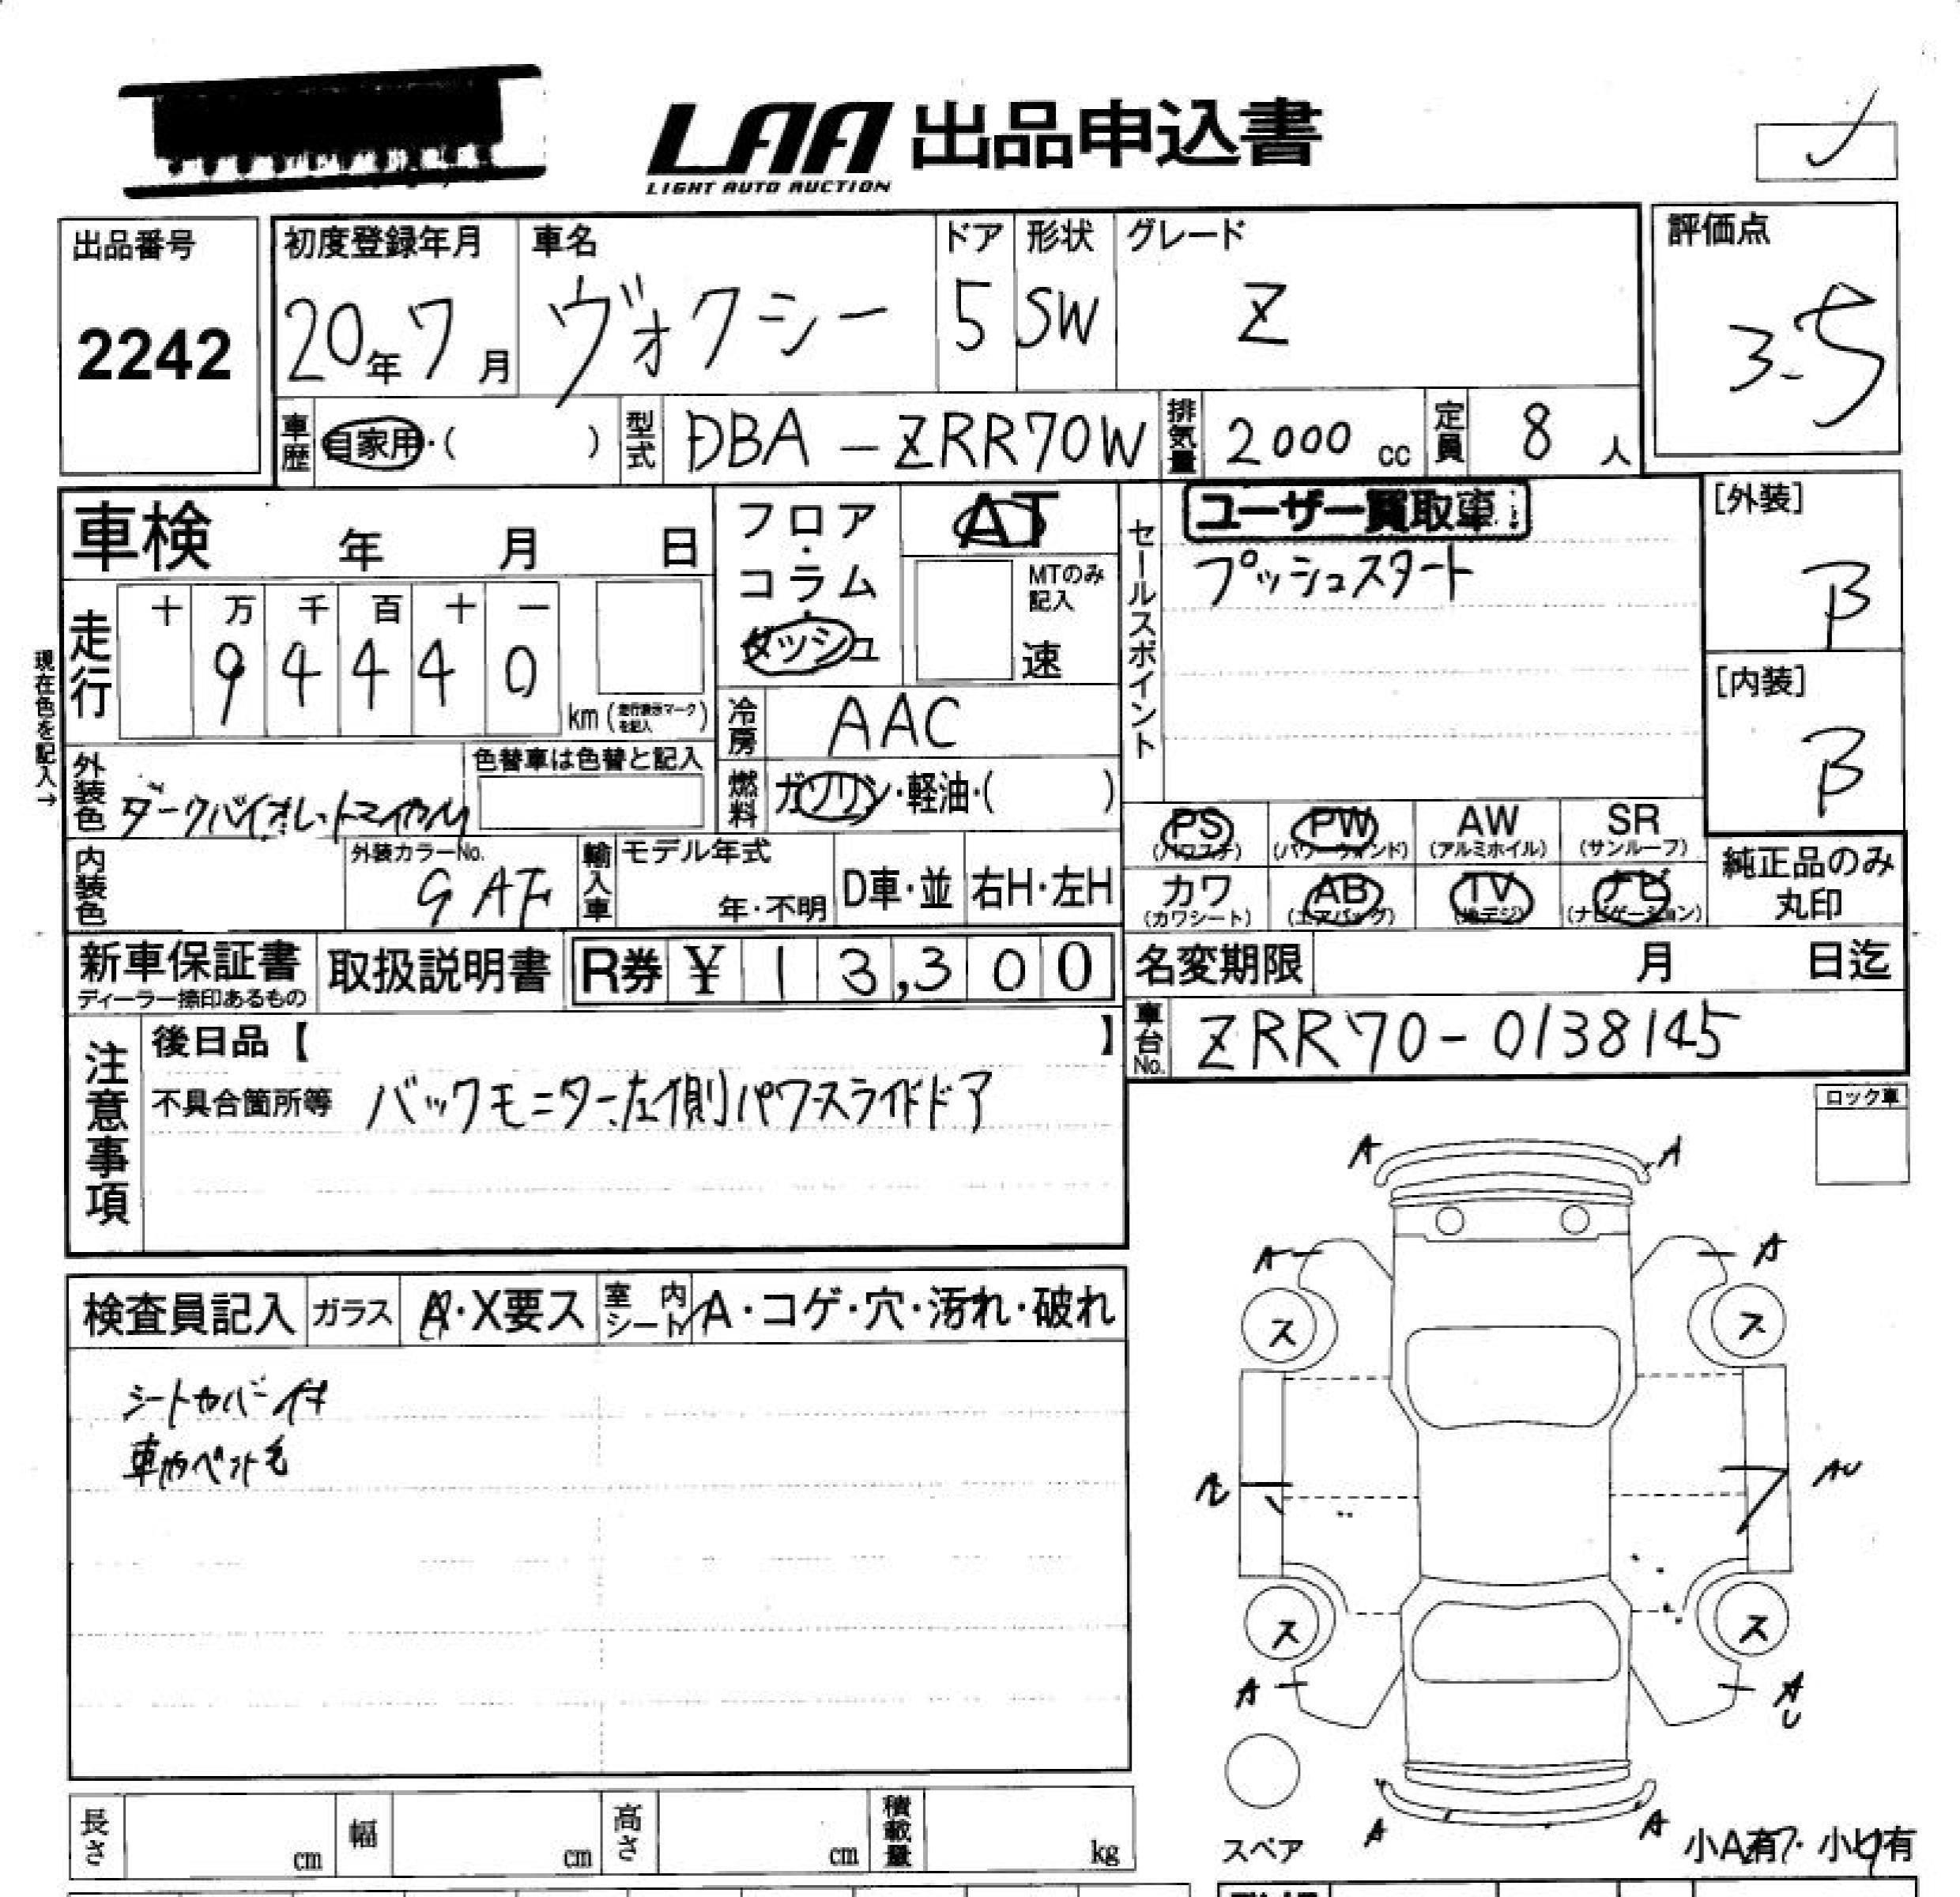 LAA 出品申込書
LIGHT AUTO AUCTION
出品番号
2242
初度登録年月
20年7月
車名
ヴォクシー
ドア
5
形状
SW
グレード
Z
評価点
3.5
車歴
自家用・( )
型式
DBA-ZRR70W
排気量
2000 cc
定員
8人
車検 年 月 日
フロア・コラム・ダッシュ
AT
MTのみ記入
速
セールスポイント
ユーザー買取車
プッシュスタート
[外装]
B
[内装]
B
現在色を記入→
走行
十 万 千 百 十 一
9 4 4 4 0
km (走行表示マークを記入)
冷房
AAC
燃料
ガソリン・軽油・( )
外装色
ダークバイオレットマイカM
色替車は色替と記入
内装色
外装カラーNo.
9AF
輸入車
モデル年式
年・不明
D車・並
右H・左H
PS
(パワステ)
PW
(パワーウィンド)
AW
(アルミホイル)
SR
(サンルーフ)
カワ
(カワシート)
AB
(エアバッグ)
TV
(地デジ)
ナビ
(ナビゲーション)
純正品のみ
丸印
新車保証書
ディーラー捺印あるもの
取扱説明書
R券 ¥ 13,300
名変期限 月 日迄
車台No.
ZRR70-0138145
注意事項
後日品【 】
不具合箇所等 バックモニター、左側パワースライドドア
ロック車
検査員記入
ガラス
A・X要ス
室内シート
A・コゲ・穴・汚れ・破れ
シートカバー付
車内ペット毛
A A
A A
ス ス
AU
ス ス
A A
U
A A
スペア
小A有・小U有
長さ cm
幅 cm
高さ cm
積載量 kg